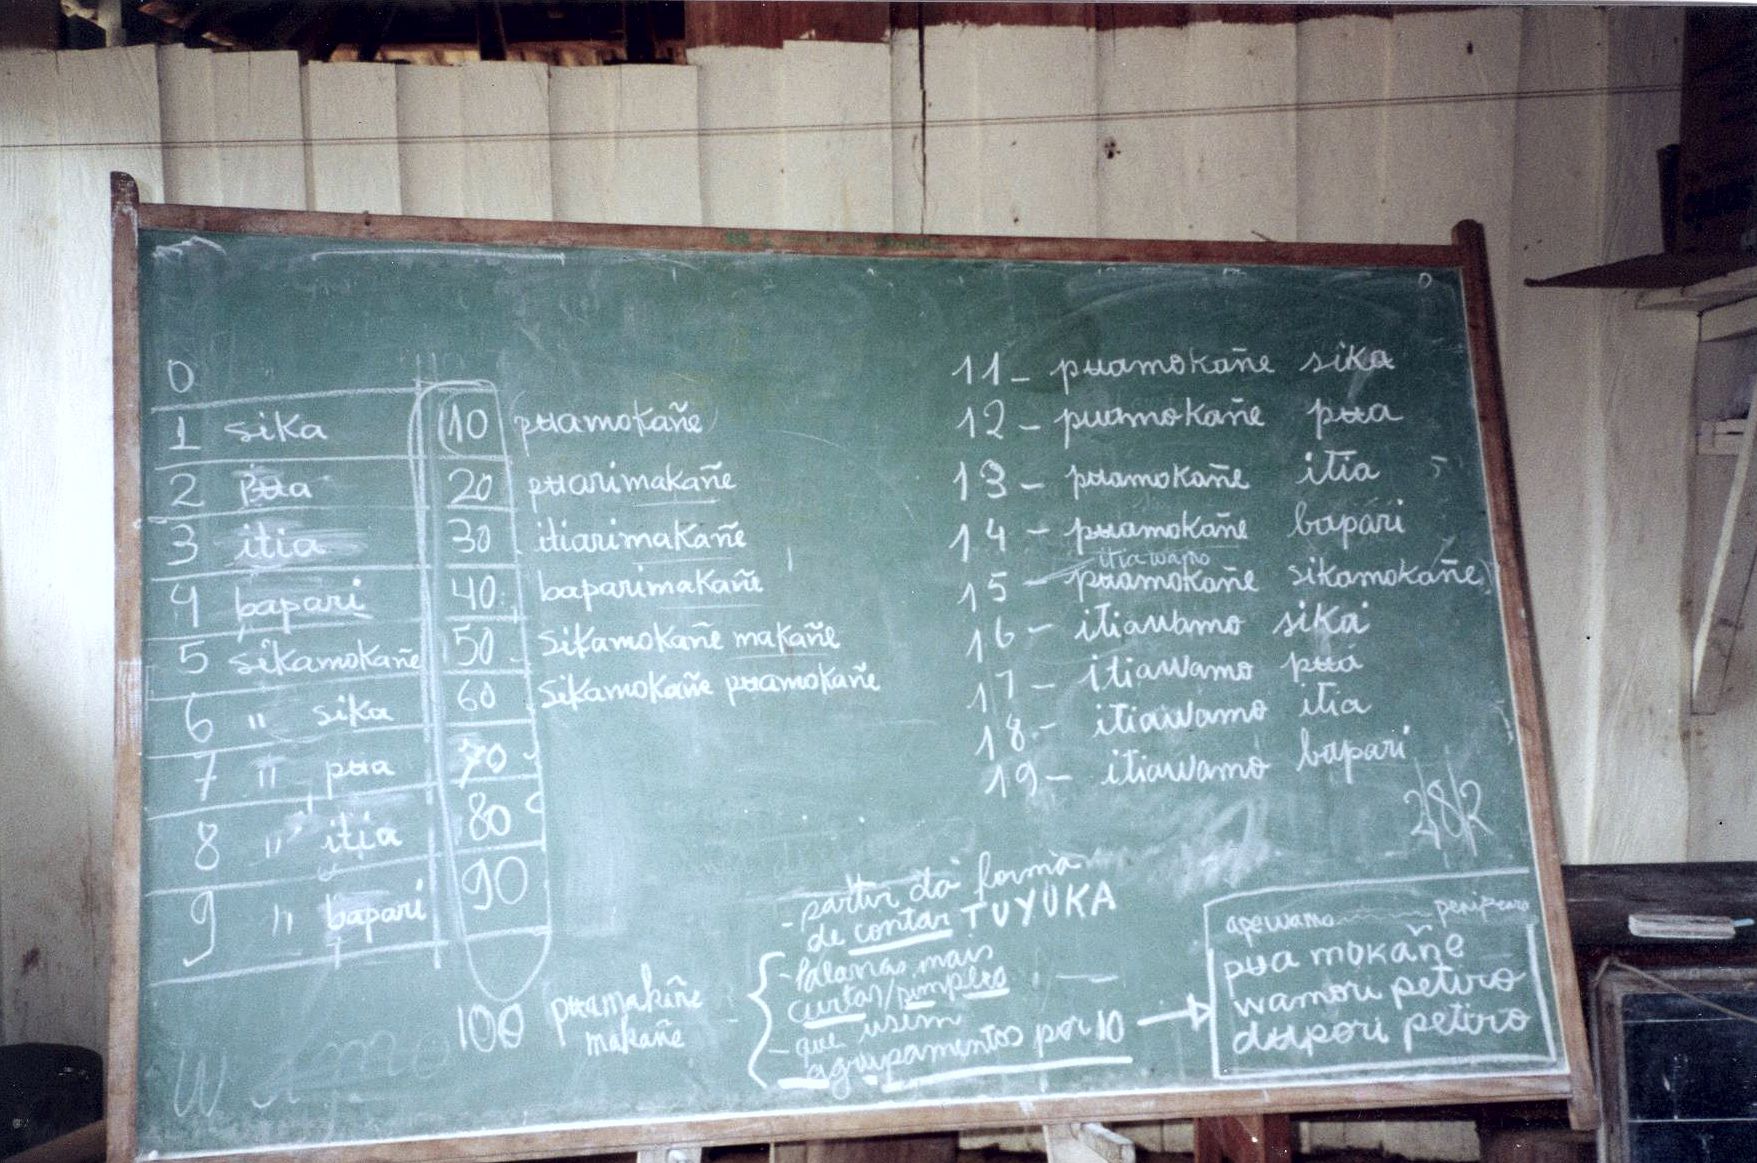 0
1 sika
2 pʉa
3 itia
4 bapari
5 sikamokañe
6 " sika
7 " pʉa
8 " itia
9 " bapari
10 pʉamokañe
20 pʉarimakañe
30 itiarimakañe
40 baparimakañe
50 sikamokañe makañe
60 sikamokañe pʉamokañe
70
80
90
100 pʉamakañe
makañe
11 - pʉamokañe sika
12 - pʉamokañe pʉa
13 - pʉamokañe itia
14 - pʉamokañe bapari
itiawamo
15 - pʉamokañe sikamokañe)
16 - itiawamo sika
17 - itiawamo pʉa
18 - itiawamo itia
19 - itiawamo bapari
2|8|2
- partir da forma
de contar TUYUKA
- Palavras mais
curtas/simples
- que usem
agrupamentos por 10
apewamo
pʉa mokañe
wamori petiro
dʉpori petiro